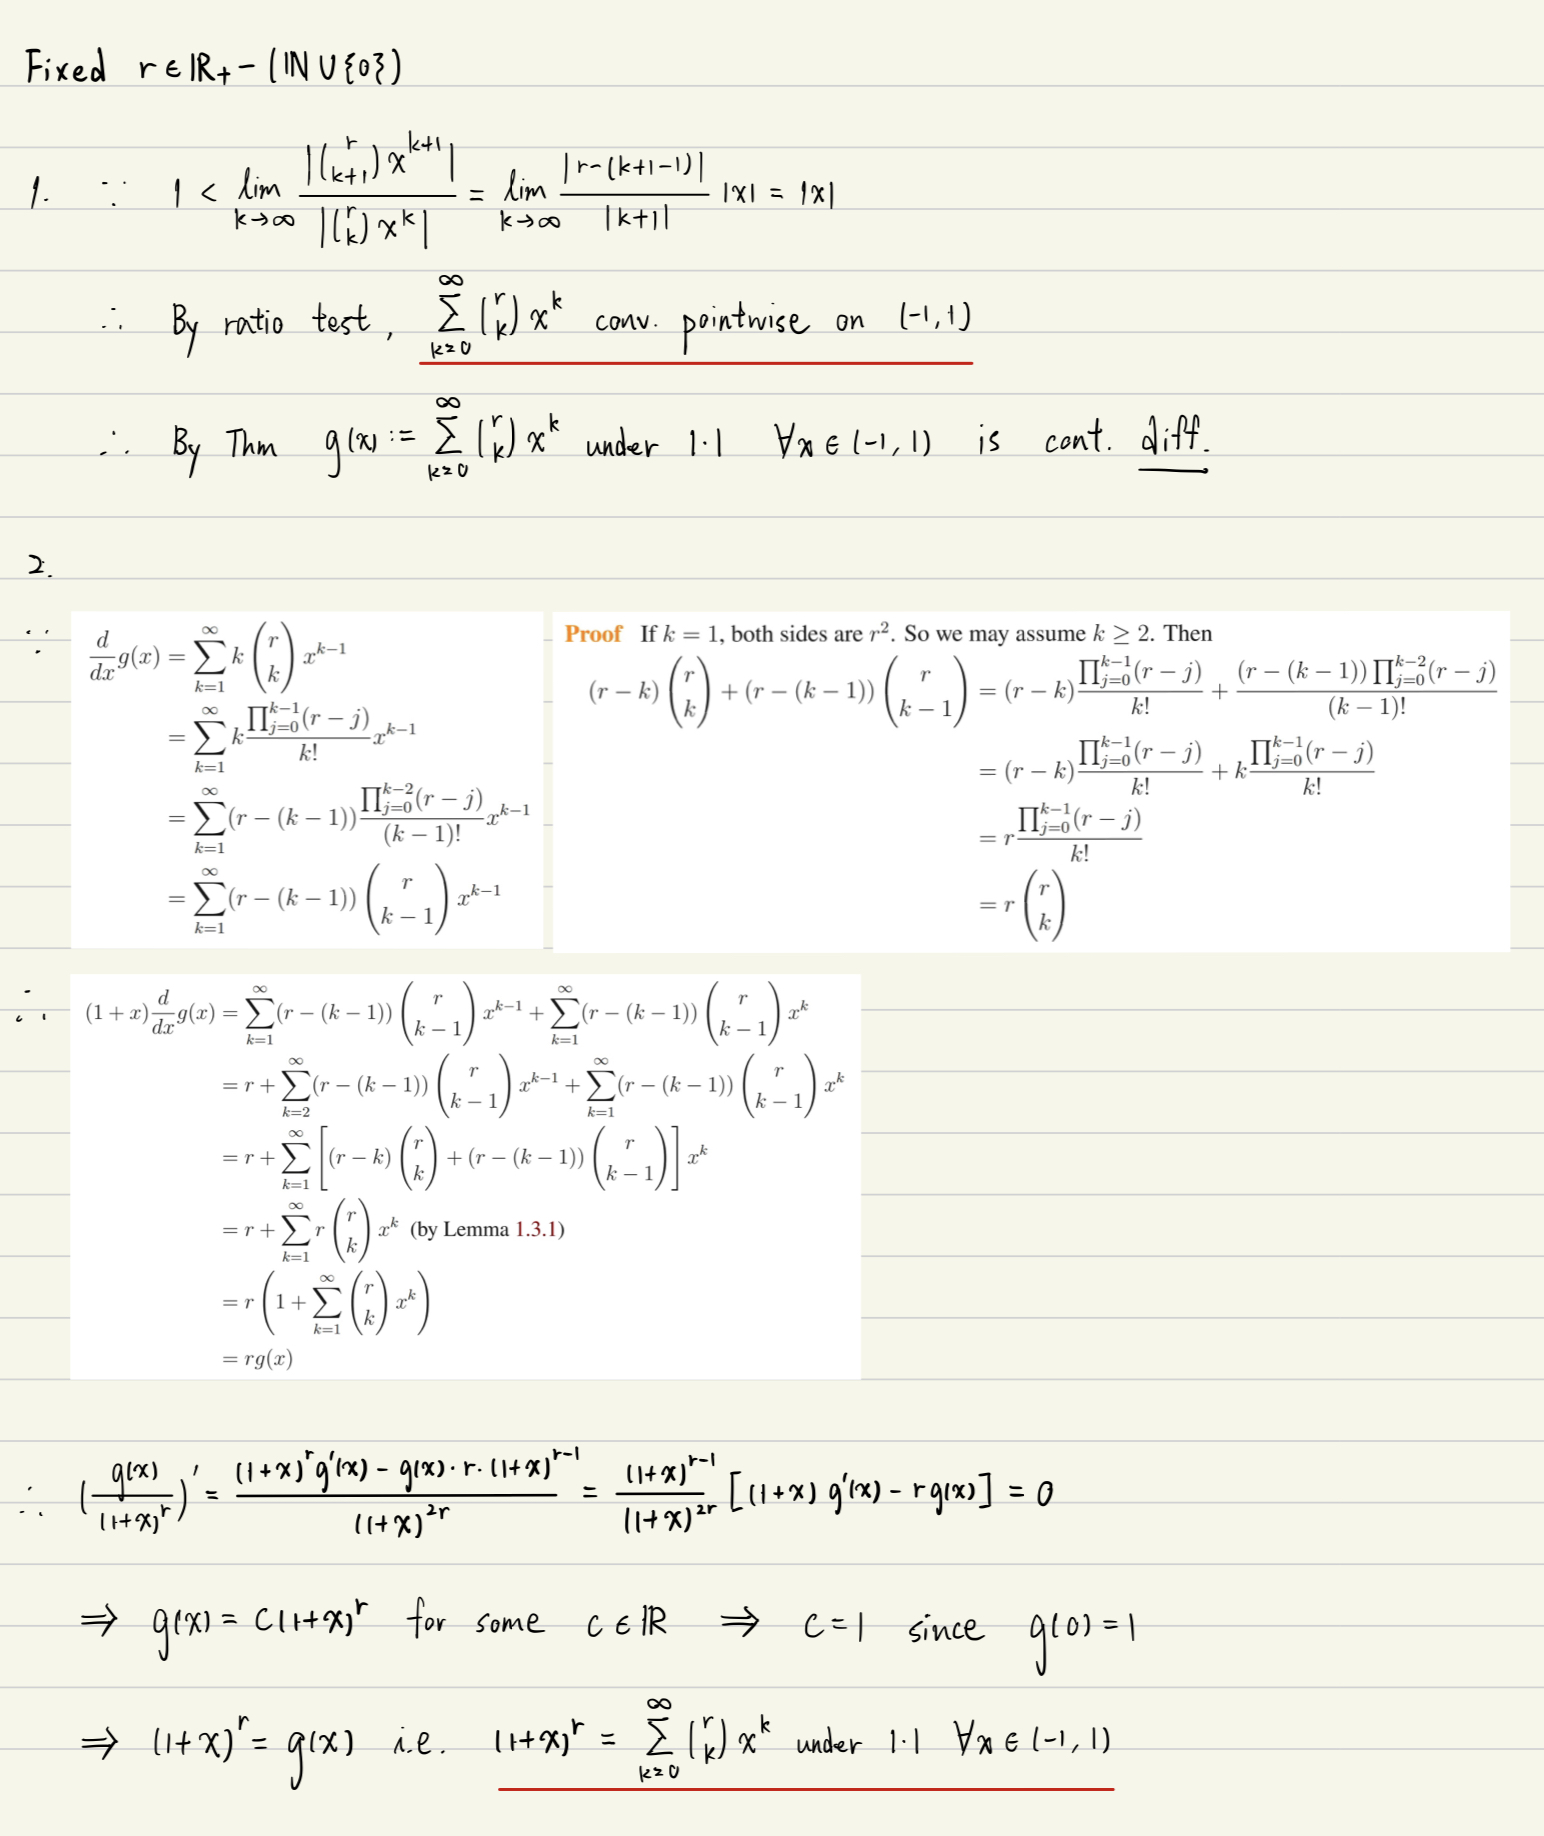 Fixed r ∈ ℝ₊ − (ℕ ∪ {0})
1. ∵ 1 < lim_{k→∞} |(r choose k+1) x^{k+1}| / |(r choose k) x^k| = lim_{k→∞} |r−(k+1−1)| / |k+1| |x| = |x|
∴ By ratio test, ∑_{k=0}^{∞} (r choose k) x^k conv. pointwise on (−1,1)
∴ By Thm g(x) := ∑_{k=0}^{∞} (r choose k) x^k under |·| ∀x ∈ (−1,1) is cont. diff.
2.
∵ d/dx g(x) = ∑_{k=1}^{∞} k (r choose k) x^{k−1}
= ∑_{k=1}^{∞} k ∏_{j=0}^{k−1}(r − j) / k! x^{k−1}
= ∑_{k=1}^{∞} (r − (k − 1)) ∏_{j=0}^{k−2}(r − j) / (k − 1)! x^{k−1}
= ∑_{k=1}^{∞} (r − (k − 1)) (r choose k − 1) x^{k−1}
Proof If k = 1, both sides are r². So we may assume k ≥ 2. Then
(r − k) (r choose k) + (r − (k − 1)) (r choose k − 1) = (r − k) ∏_{j=0}^{k−1}(r − j) / k! + (r − (k − 1)) ∏_{j=0}^{k−2}(r − j) / (k − 1)!
= (r − k) ∏_{j=0}^{k−1}(r − j) / k! + k ∏_{j=0}^{k−1}(r − j) / k!
= r ∏_{j=0}^{k−1}(r − j) / k!
= r (r choose k)
∴ (1 + x) d/dx g(x) = ∑_{k=1}^{∞} (r − (k − 1)) (r choose k − 1) x^{k−1} + ∑_{k=1}^{∞} (r − (k − 1)) (r choose k − 1) x^k
= r + ∑_{k=2}^{∞} (r − (k − 1)) (r choose k − 1) x^{k−1} + ∑_{k=1}^{∞} (r − (k − 1)) (r choose k − 1) x^k
= r + ∑_{k=1}^{∞} [(r − k) (r choose k) + (r − (k − 1)) (r choose k − 1)] x^k
= r + ∑_{k=1}^{∞} r (r choose k) x^k (by Lemma 1.3.1)
= r (1 + ∑_{k=1}^{∞} (r choose k) x^k)
= rg(x)
∴ (g(x) / (1+x)^r)′ = ((1+x)^r g′(x) − g(x)·r·(1+x)^{r−1}) / (1+x)^{2r} = (1+x)^{r−1} / (1+x)^{2r} [(1+x) g′(x) − r g(x)] = 0
⇒ g(x) = C(1+x)^r for some c ∈ ℝ ⇒ c = 1 since g(0) = 1
⇒ (1+x)^r = g(x) i.e. (1+x)^r = ∑_{k=0}^{∞} (r choose k) x^k under |·| ∀x ∈ (−1,1)